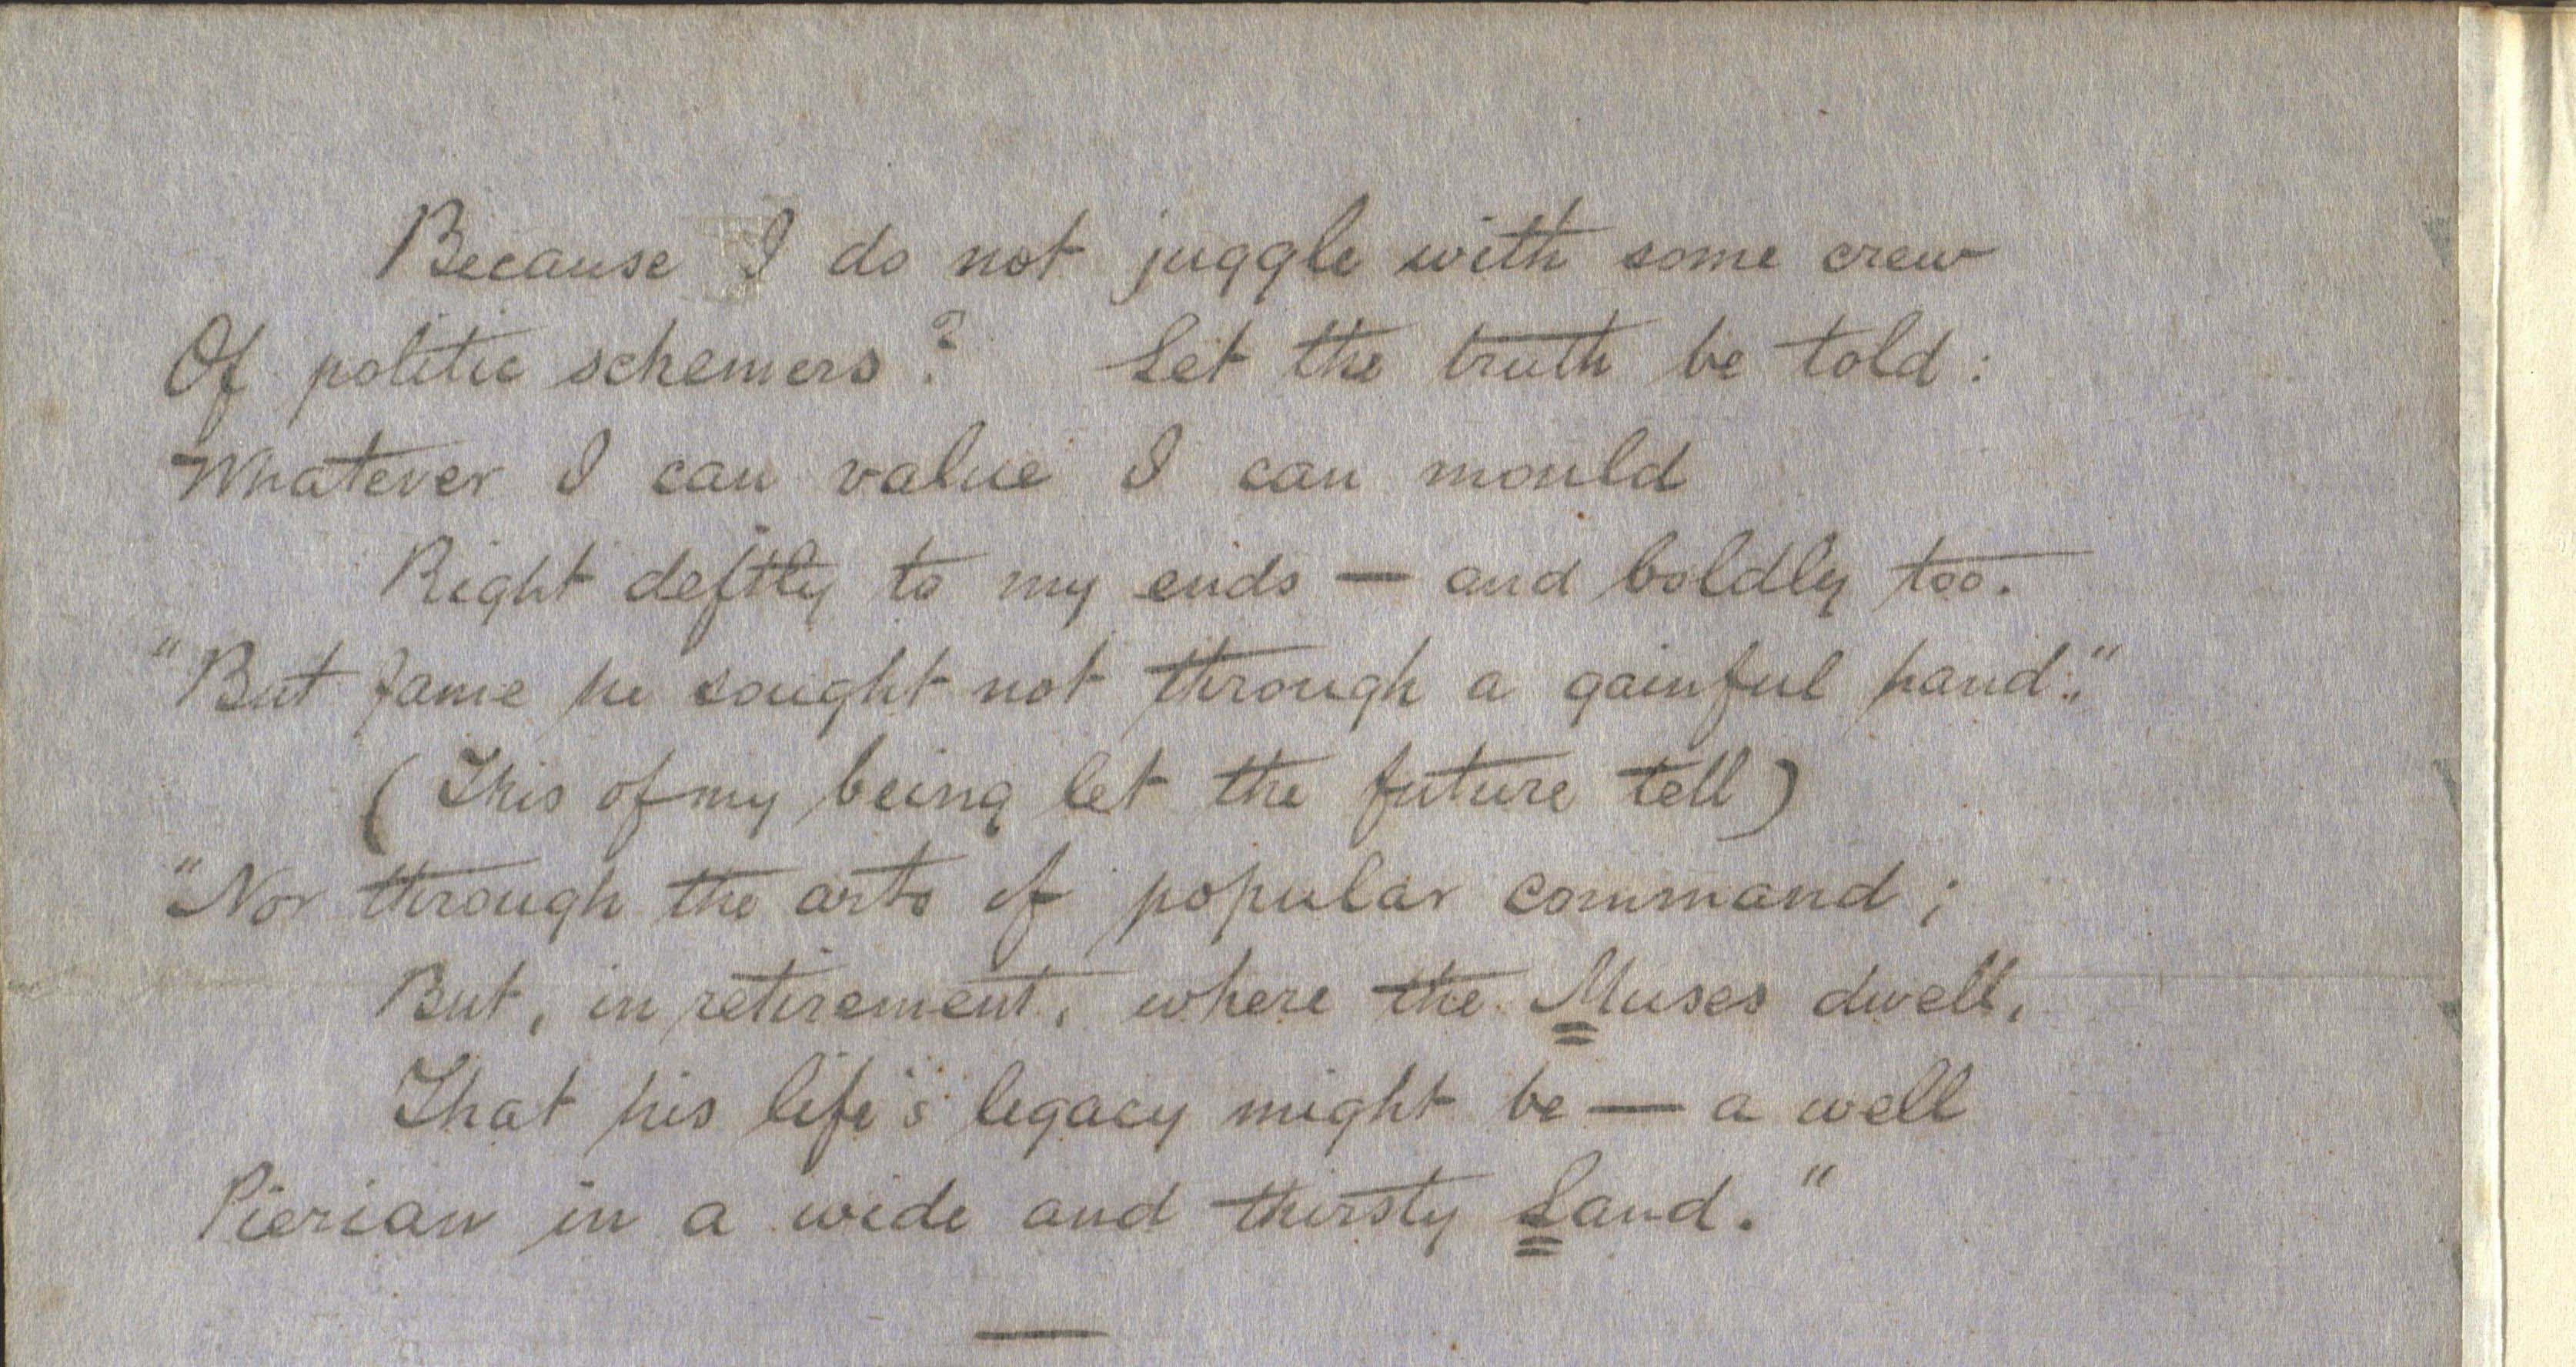 Because I do not juggle with some crew
Of politic schemers? Let the truth be told:
Whatever I can value I can mould
Right deftly to my ends — and boldly too.
"But fame he sought not through a gainful hand."
(This of my being let the future tell)
"Nor through the arts of popular command;
But, in retirement, where the Muses dwell,
That his life's legacy might be — a well
Pierian in a wide and thirsty Land."